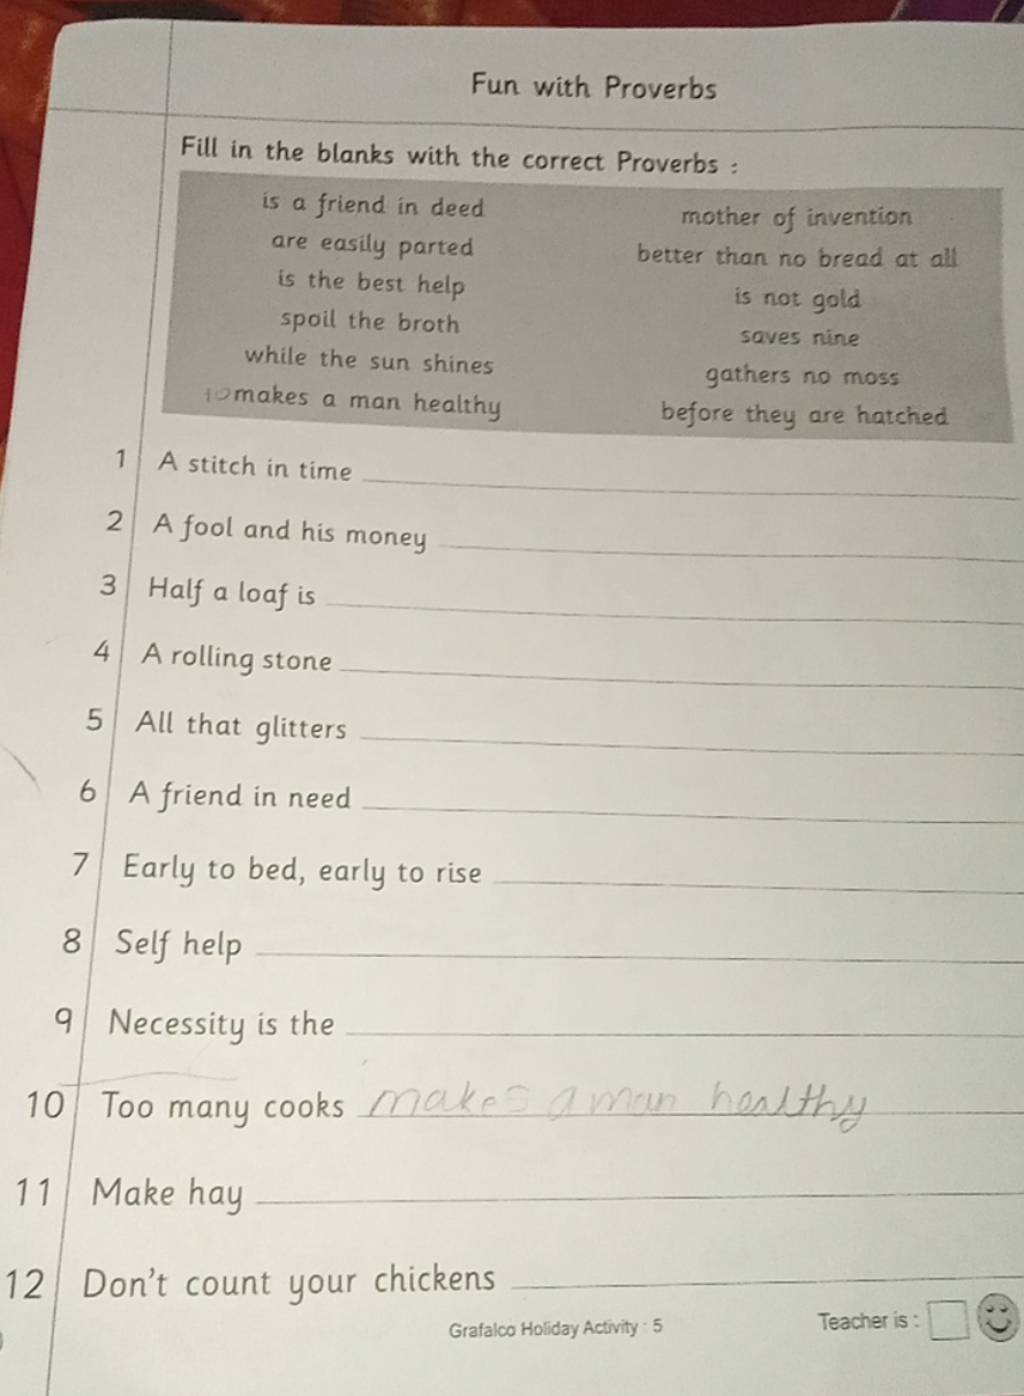 Fun with Proverbs
Fill in the blanks with the correct Proverbs :
is a friend in deed
mother of invention
are easily parted
better than no bread at all
is the best help
is not gold
spoil the broth
saves nine
while the sun shines
gathers no moss
10 makes a man healthy
before they are hatched
1 A stitch in time
2 A fool and his money
3 Half a loaf is
4 A rolling stone
5 All that glitters
6 A friend in need
7 Early to bed, early to rise
8 Self help
9 Necessity is the
10 Too many cooks makes a man healthy
11 Make hay
12 Don't count your chickens
Grafalco Holiday Activity : 5
Teacher is :